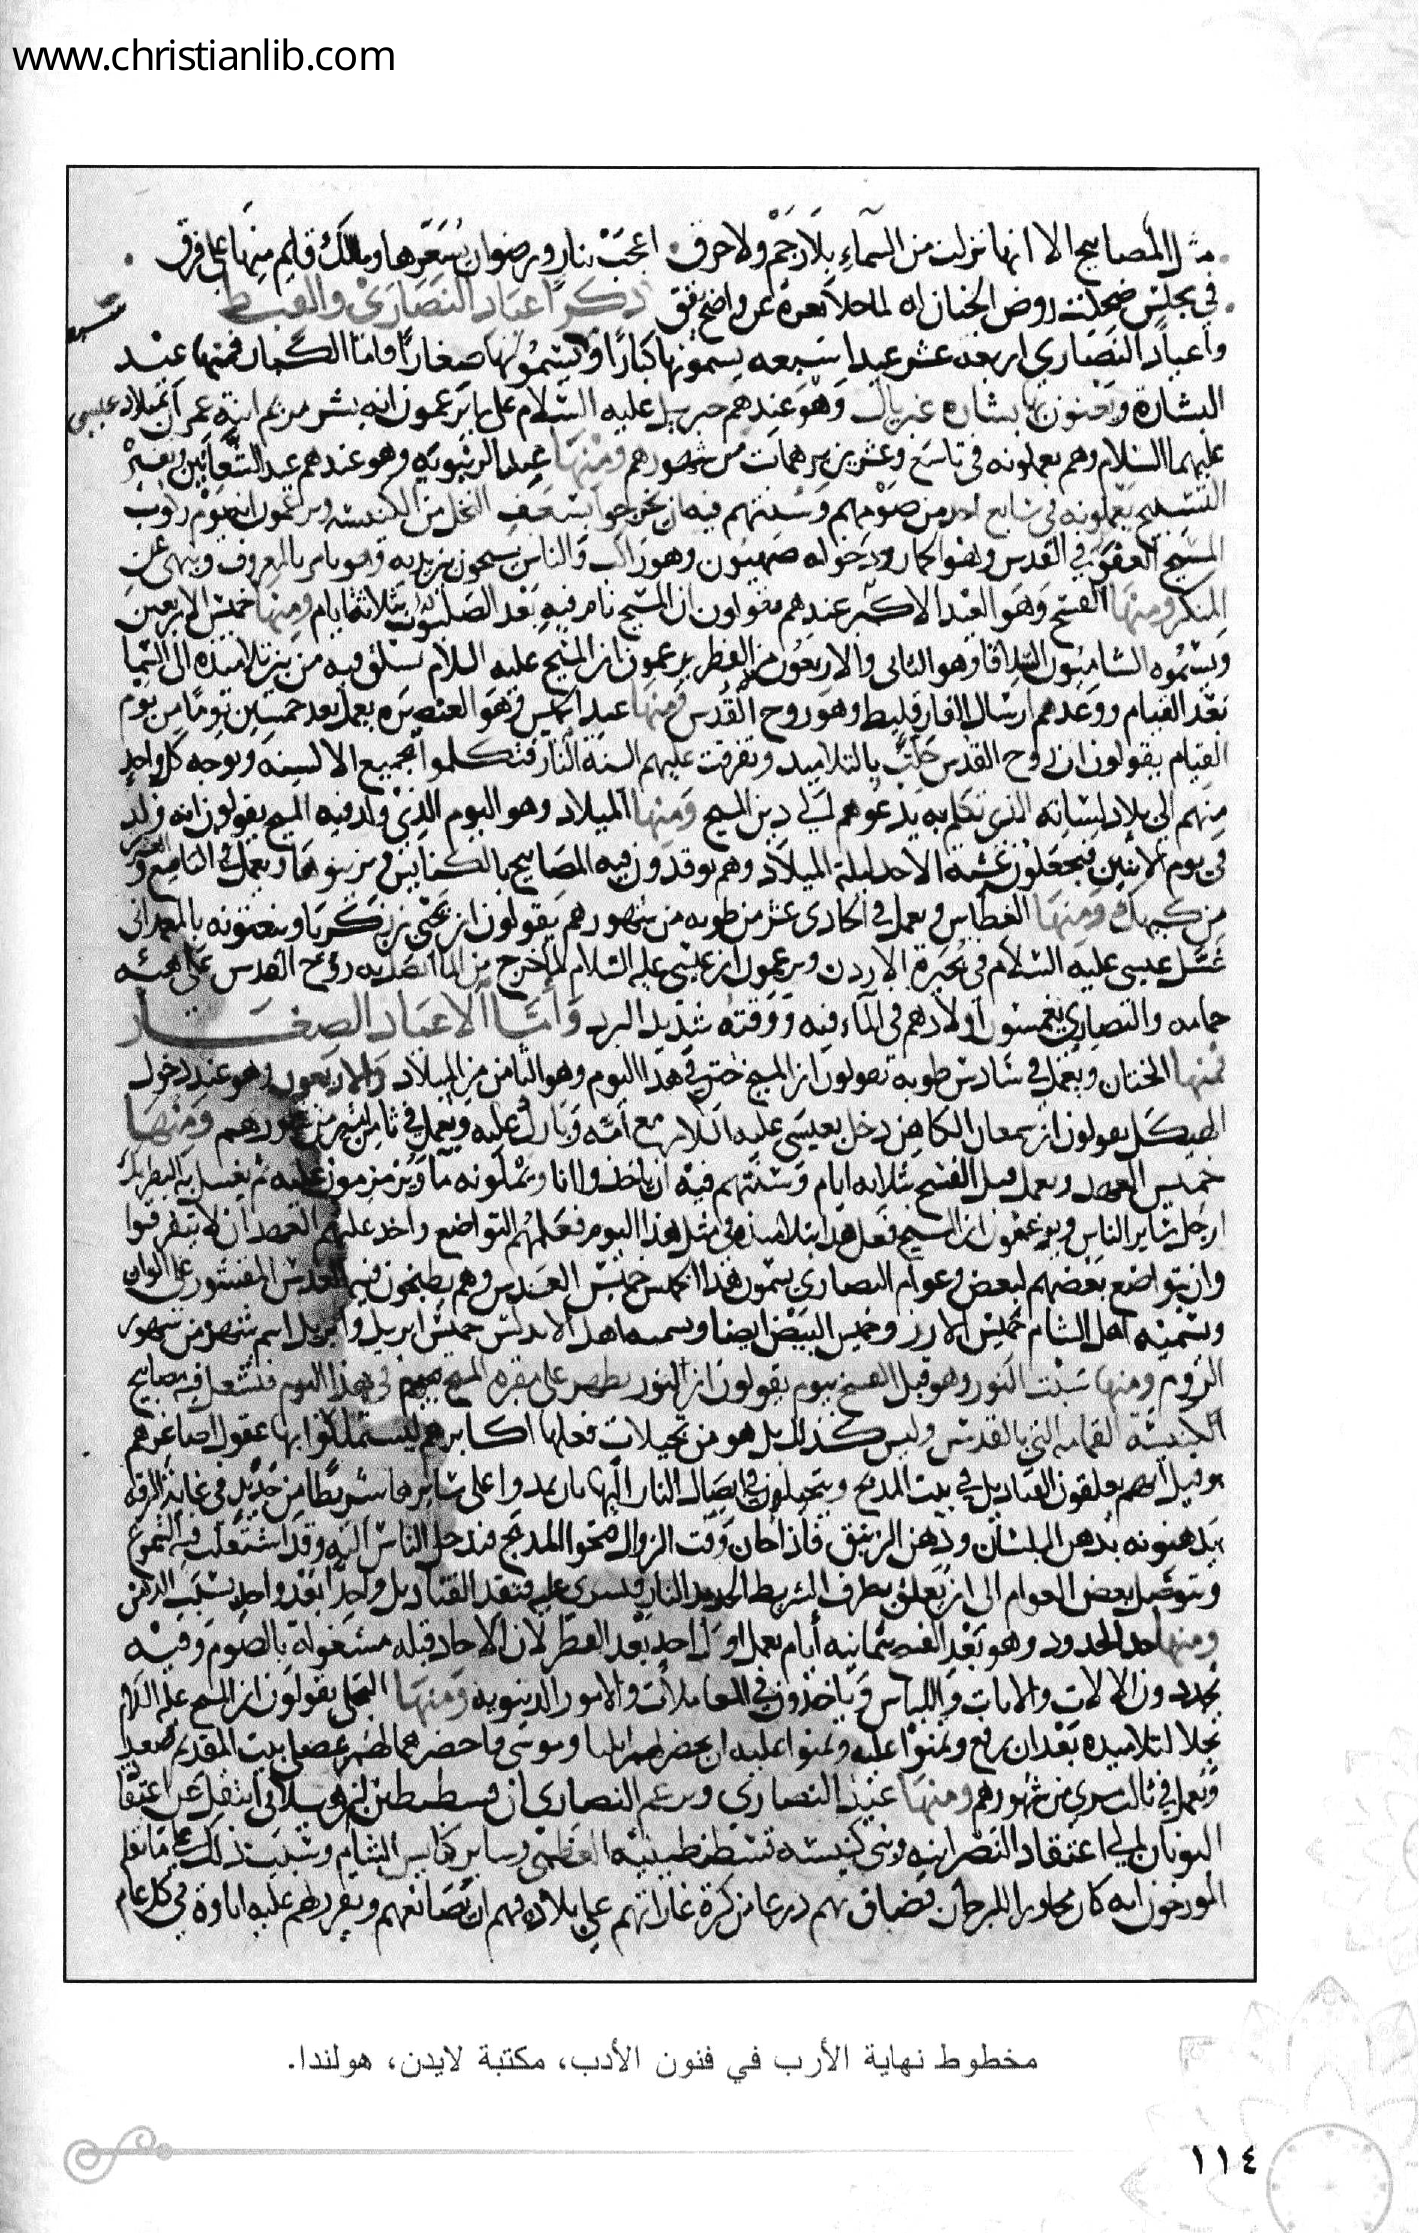 www.christianlib.com
مثل المصابيح الا انها نزلت من السماء بلا رجم ولا حرق اعجب بنار ورضوان يسعرها ومالك قايم منها على فرق
في مجلس ضحكت روض الجنان له لما جلا ثغره عن واضح يقق ذكر اعياد النصارى والقبط
واعياد النصارى اربعة عشر عيدا سبعه يسمونها كبارا وسبعة يسمونها صغارا فاما الكبار فمنها عيد
البشارة ويعنون بها بشاره غبريال وهو عندهم جبريل عليه السلام على ما يزعمون انه بشر مريم ابنة عمران بميلاد عيسى
عليهما السلام وهم يعملونه في تاسع وعشرين برمهات من شهورهم ومنها عيد الزيتونه وهو عندهم عيد الشعانين وتفسيره
التسبيح يعملونه في سابع احد من صومهم وسنتهم فيه ان يخرجوا بسعف النخل من الكنيسه ويزعمون انه يوم ركوب
المسيح في القدس وهو الحمار ودخوله صهيون وهو راكب والناس يسبحون بين يديه وهو يامر بالمعروف وينهى عن
المنكر ومنها الفسح وهو العيد الاكبر عندهم يقولون ان المسيح قام فيه بعد الصلبوت بثلاثة ايام ومنها خميس الاربعين
ويسموه الشاميون السلاقا وهو الثاني والاربعون من الفطر يزعمون ان المسيح عليه السلام تسلق فيه من بين تلاميذه الى السما
بعد القيام ووعدهم ارسال الفارقليط وهو روح القدس ومنها عيد الخميس وهو العنصره يعمل بعد خمسين يوما من يوم
القيام يقولون ان روح القدس حلت بالتلاميد وتفرقت عليهم السنة النار فتكلموا بجميع الالسنه وتوجه كل واحد
منهم الى بلاد لسانه الذي تكلم به يدعوهم الى دين المسيح ومنها الميلاد وهو اليوم الذي ولد فيه المسيح يقولون انه ولد
في يوم الاثنين فيجعلون عشية الاحد ليلة الميلاد وهم يوقدون فيه المصابيح بالكنايس ويزينونها ويعمل في التاسع والعشرين
من كيهك ومنها الغطاس ويعمل في الحادى عشر من طوبه من شهورهم يقولون ان يحيى بن زكريا وينعتونه بالمعمداني
غسل عيسى عليه السلام في بحيرة الاردن ويزعمون ان عيسى عليه السلام لما خرج من الما اتصل به روح القدس على هيئة
حمامه والنصارى يغمسون اولادهم في الماء فيه ووقته شديد البرد واما الاعياد الصغار
فمنها الختان ويعمل في سادس طوبه يقولون ان المسيح ختن في هذا اليوم وهو الثامن من الميلاد والاربعون وهو عند دخول
الهيكل يقولون ان سمعان الكاهن دخل بعيسى عليه السلام مع امه وبارك عليه ويعمل في ثامن امشير من شهورهم ومنها
خميس العهد ويعمل قبل الفسح بثلاثه ايام وسنتهم فيه ان ياخذوا انا ويملونه ما ويزمزمون عليه ثم يغسل به البطريك
ارجل ساير الناس ويزعمون ان المسيح فعل هدا بتلاميذه في مثل هذا اليوم فعلمهم التواضع واخذ عليهم العهد ان لا يتفرقوا
وان يتواضع بعضهم لبعض وعوام النصارى يسمون هذا الخميس خميس العدس وهم يطبخون فيه العدس المقشور على الوان
ويسميه اهل الشام خميس الارز وخميس البيض ايضا ويسميه اهل الاندلس خميس ابريل وابريل اسم شهر من شهور
الروم ومنها سبت النور وهو قبل الفسح بيوم يقولون ان النور يظهر على مقبره المسيح في هذا اليوم فتشعل فيه مصابيح
الكنيسة القمامه التي بالقدس وليس كذلك بل هو من تخيلات فعلها اكابرهم ليستملكوا بها عقول اصاغرهم
وقيل انهم يعلقون القناديل في بيت المذبح ويتحيلون في ايصال النار اليها بان يمدوا على سايرها شريطا من حديد في غاية الرقه
يدهنونه بدهن البلسان ودهن الزنبق فاذا حان وقت الزوال فتحوا المذبح فدخل الناس اليه وقد اشتعلت فيه الشموع
ويتوصل بعض العوام الى ان يعلق بطرف الشريط الحديد النار فتسرى عليه فتقد القناديل واحدا بعد واحد بسبب الدهن
ومنها حد الحدود وهو بعد الفسح بثمانيه أيام يعمل اول احد بعد الفطر لان الاحاد قبله مشغولة بالصوم وفيه
يجددون الالات والاثاث واللباس وياخذون في المعاملات والامور الدنيويه ومنها التجلى يقولون ان المسيح عليه السلام
تجلا لتلاميده بعد ان رفع وتمنوا عليه ان يحضر لهم ايليا وموسى فاحضرهما لهم بمصلى بيت المقدس ثم صعد
ويعمل في ثالث مسري من شهورهم ومنها عيد الصليب ويزعم النصارى ان قسطنطين بن هيلاني انتقل عن اعتقاد
اليونان الى اعتقاد النصرانيه وبنى كنيسه قسطنطينيه العظمى وساير كنايس الشام وسبب ذلك على ما نقله
المورخون انه كان مجاورا للبرجان فضاق بهم ذرعا من كثرة غاراتهم على بلاده فهم ان يصانعهم ويقرر لهم عليه اتاوة في كل عام
مخطوط نهاية الأرب في فنون الأدب، مكتبة لايدن، هولندا.
١١٤